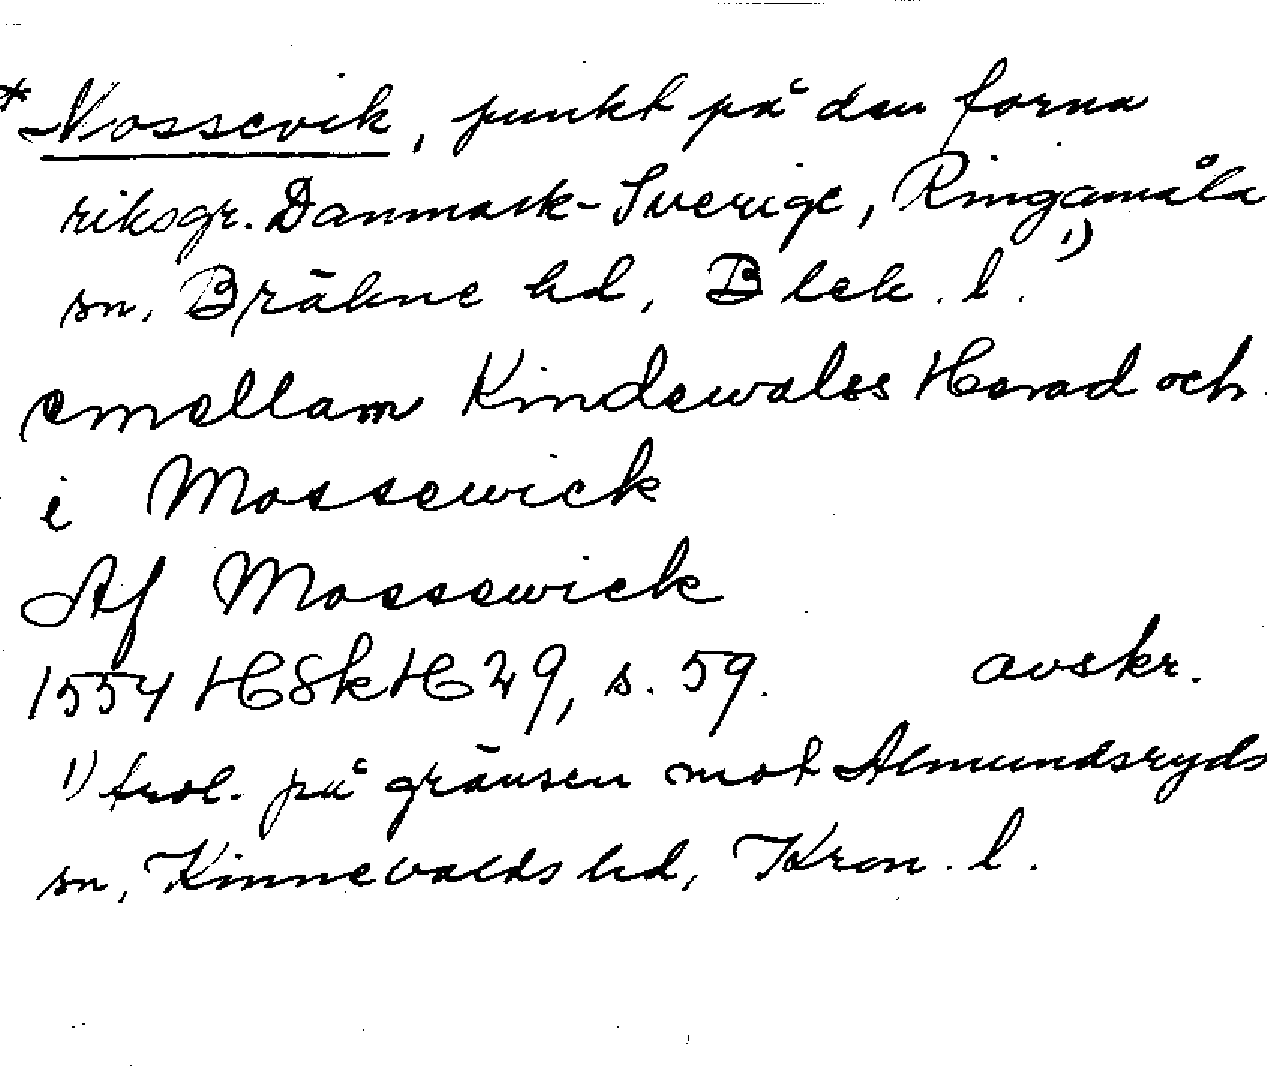 * Nossevik, punkt på den forna
riksgr. Danmark-Sverige, Ringamåla
sn, Bräkne hd, Blek. l. 1)
emellam Kindewalss Herad och
i Mossewick
Af Mossewick
1554 HSkH 29, s. 59. avskr.
1) trol. på gränsen mot Almundsryds
sn, Kinnevalds hd, Kron. l.